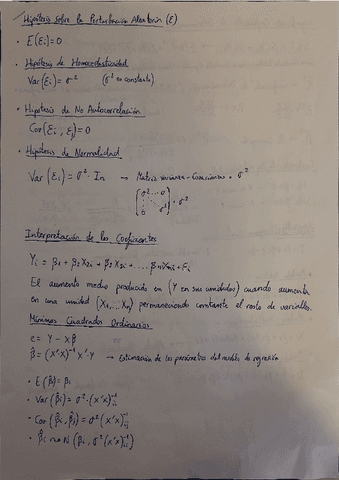 Hipótesis sobre la Perturbación Aleatoria (E)
· E(Ei)=0
· Hipótesis de Homocedasticidad
Var(Ei) = σ² (σ² es constante)
· Hipótesis de No Autocorrelación
Cov(Ei, Ej)=0
· Hipótesis de Normalidad
Var(Ei) = σ² · In → Matriz varianza-covarianzas = σ²
Interpretación de los Coeficientes
Yi = β1 + β2 X2i + β3 X3i + ..... βn Xni + Ei
El aumento medio producido en (Y en sus unidades) cuando aumenta
en una unidad (X2,.. Xn) permaneciendo constante el resto de variables.
Mínimos Cuadrados Ordinarios
e = Y - Xβ̂
β̂ = (X'X)⁻¹ X'·Y → Estimación de los parámetros del modelo de regresión
· E(β̂i) = βi
· Var(β̂i) = σ² · (X'X)⁻¹ii
· Cov(β̂i, β̂j) = σ² (X'X)⁻¹ij
· β̂i ~ N(βi, σ² (X'X)⁻¹ii)